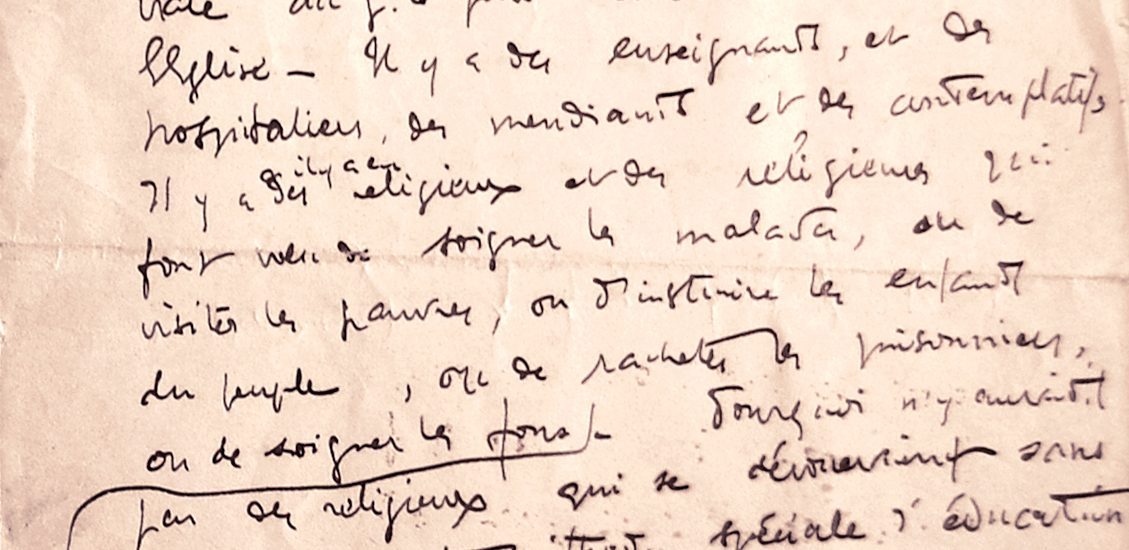 l'Eglise – Il y a des enseignants, et des
hospitaliers, des mendiants et des contemplatifs
il y a en
Il y a des religieux et des religieuses qui
font vœu de soigner les malades, ou de
visiter les pauvres, ou d'instruire les enfants
du peuple, ou de racheter les prisonniers,
ou de soigner les fous – Pourquoi n'y aurait-il
pas des religieux qui se dévoueraient sans
spéciale l'éducation